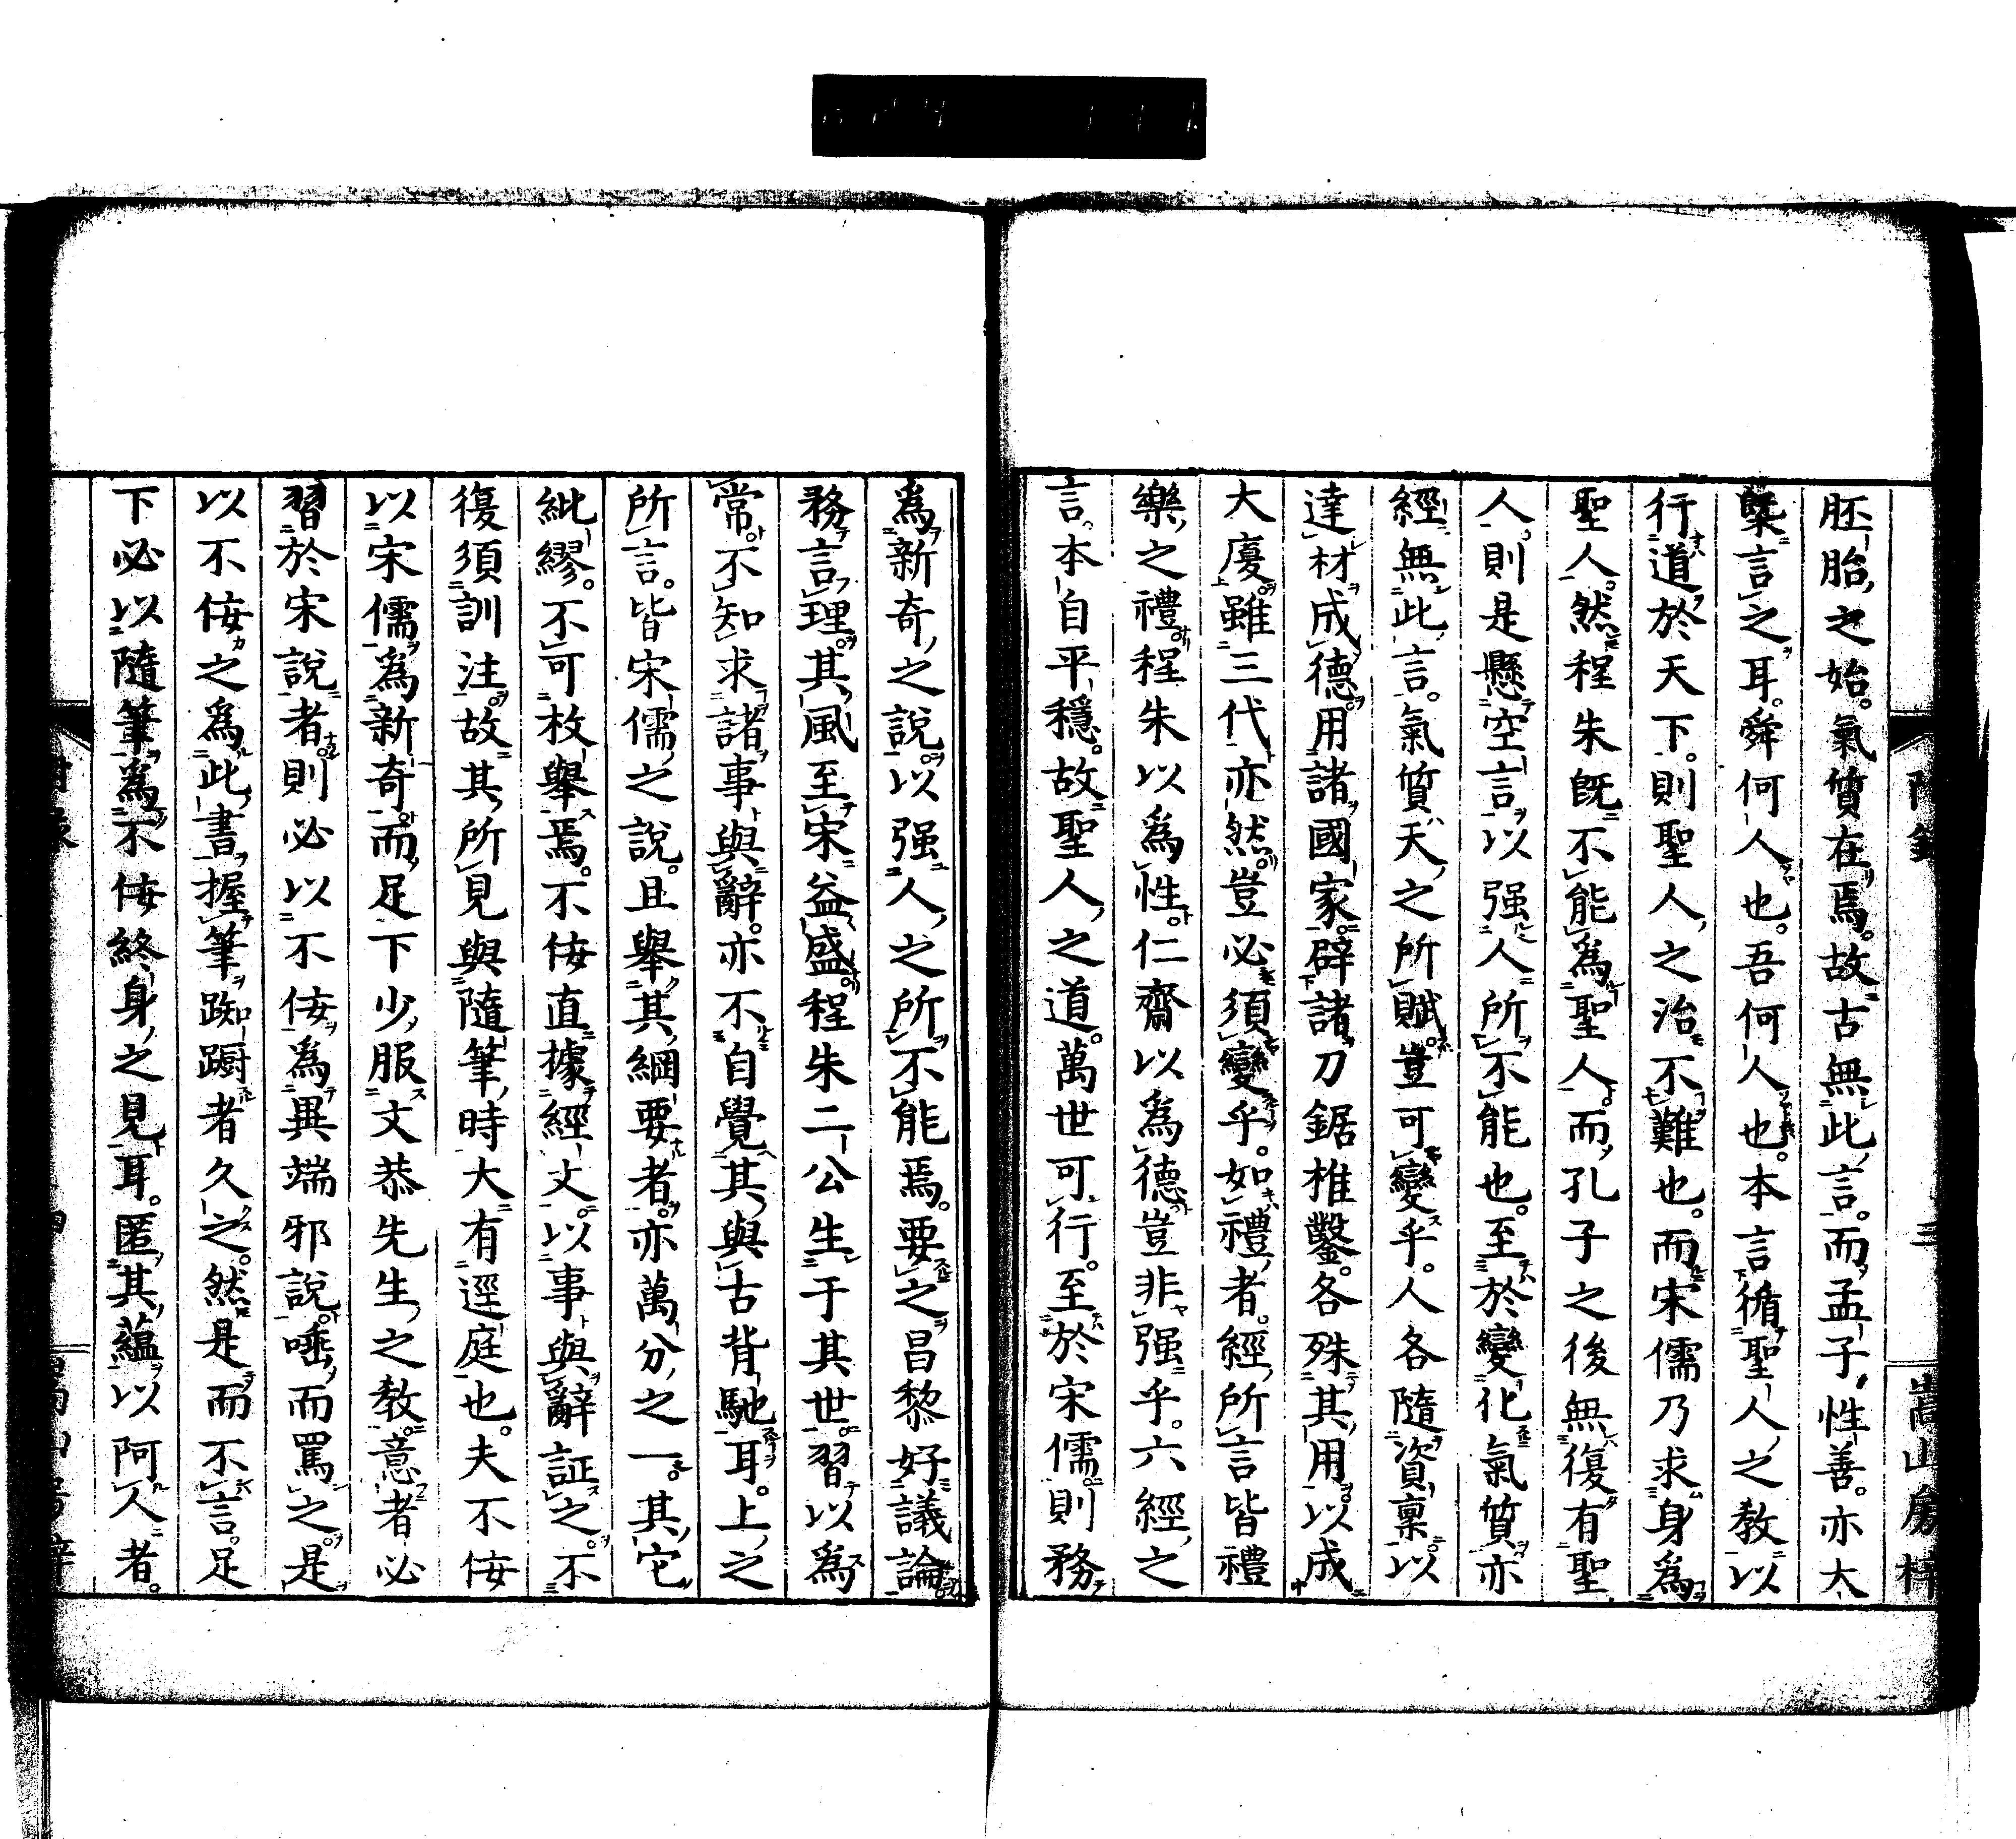 胚胎之始。氣質在焉。故古無此言。而孟子性善。亦大
槩言之耳。舜何人也。吾何人也。本言循聖人之教以
行道於天下。則聖人之治不難也。而宋儒乃求身為
聖人。然程朱既不能為聖人。而孔子之後無復有聖
人。則是懸空言以强人所不能也。至於變化氣質。亦
經無此言。氣質天之所賦。豈可變乎。人各隨資稟。以
達材成德。用諸國家。辟諸刀鋸椎鑿。各殊其用。以成
大廈。雖三代亦然。豈必須變乎。如禮者。經所言皆禮
樂之禮。程朱以為性。仁齋以為德。豈非强乎。六經之
言。本自平穩。故聖人之道。萬世可行。至於宋儒。則務
為新奇之說。以强人之所不能焉。要之昌黎好議論
務言理。其風至宋益盛。程朱二公生于其世。習以為
常。不知求諸事與辭。亦不自覺其與古背馳耳。上之
所言。皆宋儒之說。且舉其綱要者。亦萬分之一。其它
紕繆。不可枚舉焉。不侫直據經文。以事與辭証之。不
復須訓注。故其所見與隨筆時大有逕庭也。夫不侫
以宋儒為新奇。而足下少服文恭先生之教。意者必
習於宋說者。則必以不侫為異端邪說。唾而罵之。是
以不侫之為此書。握筆踟蹰者久之。然是而不言。足
下必以隨筆為不侫終身之見耳。匿其蘊以阿人者。
嵩山房梓